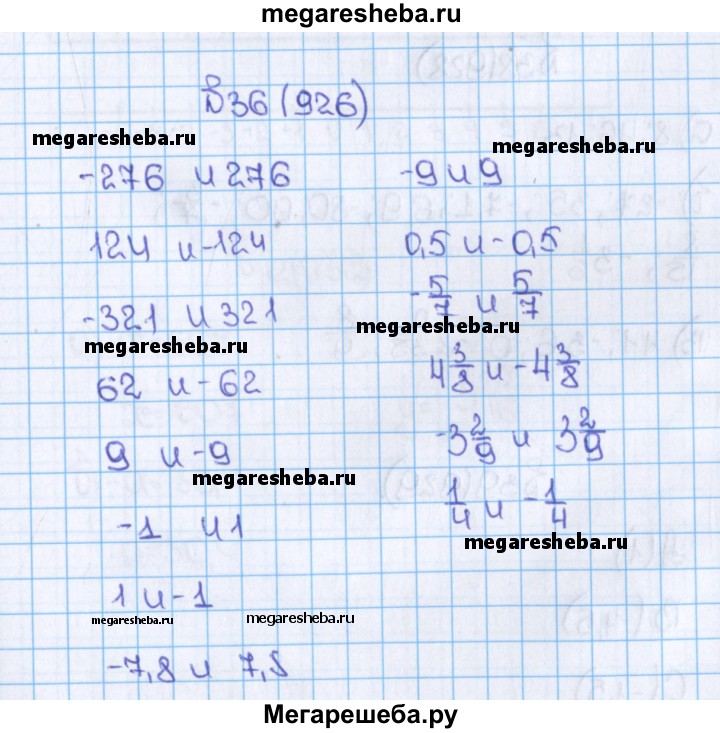 megaresheba.ru
В36 (926)
megaresheba.ru
-276 и 276
124 и -124
-321 и 321
megaresheba.ru
62 и -62
9 и -9
megaresheba.ru
-1 и 1
1 и -1
megaresheba.ru megaresheba.ru
-7,8 и 7,8
megaresheba.ru
-9 и 9
0,5 и -0,5
-5/7 и 5/7
megaresheba.ru
4 3/8 и -4 3/8
-3 2/9 и 3 2/9
1/4 и -1/4
megaresheba.ru
Мегарешеба.ру